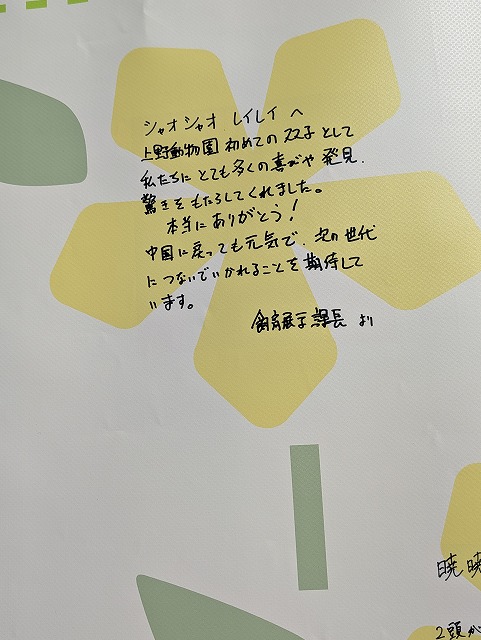 シャオシャオ レイレイ へ
上野動物園 初めての双子として
私たちに とても多くの喜びや 発見、
驚きを もたらしてくれました。
本当に ありがとう!
中国に戻っても元気で、次の世代
に つないでいかれることを 期待して
います。
飼育展示課長 より
暁暁
2頭が